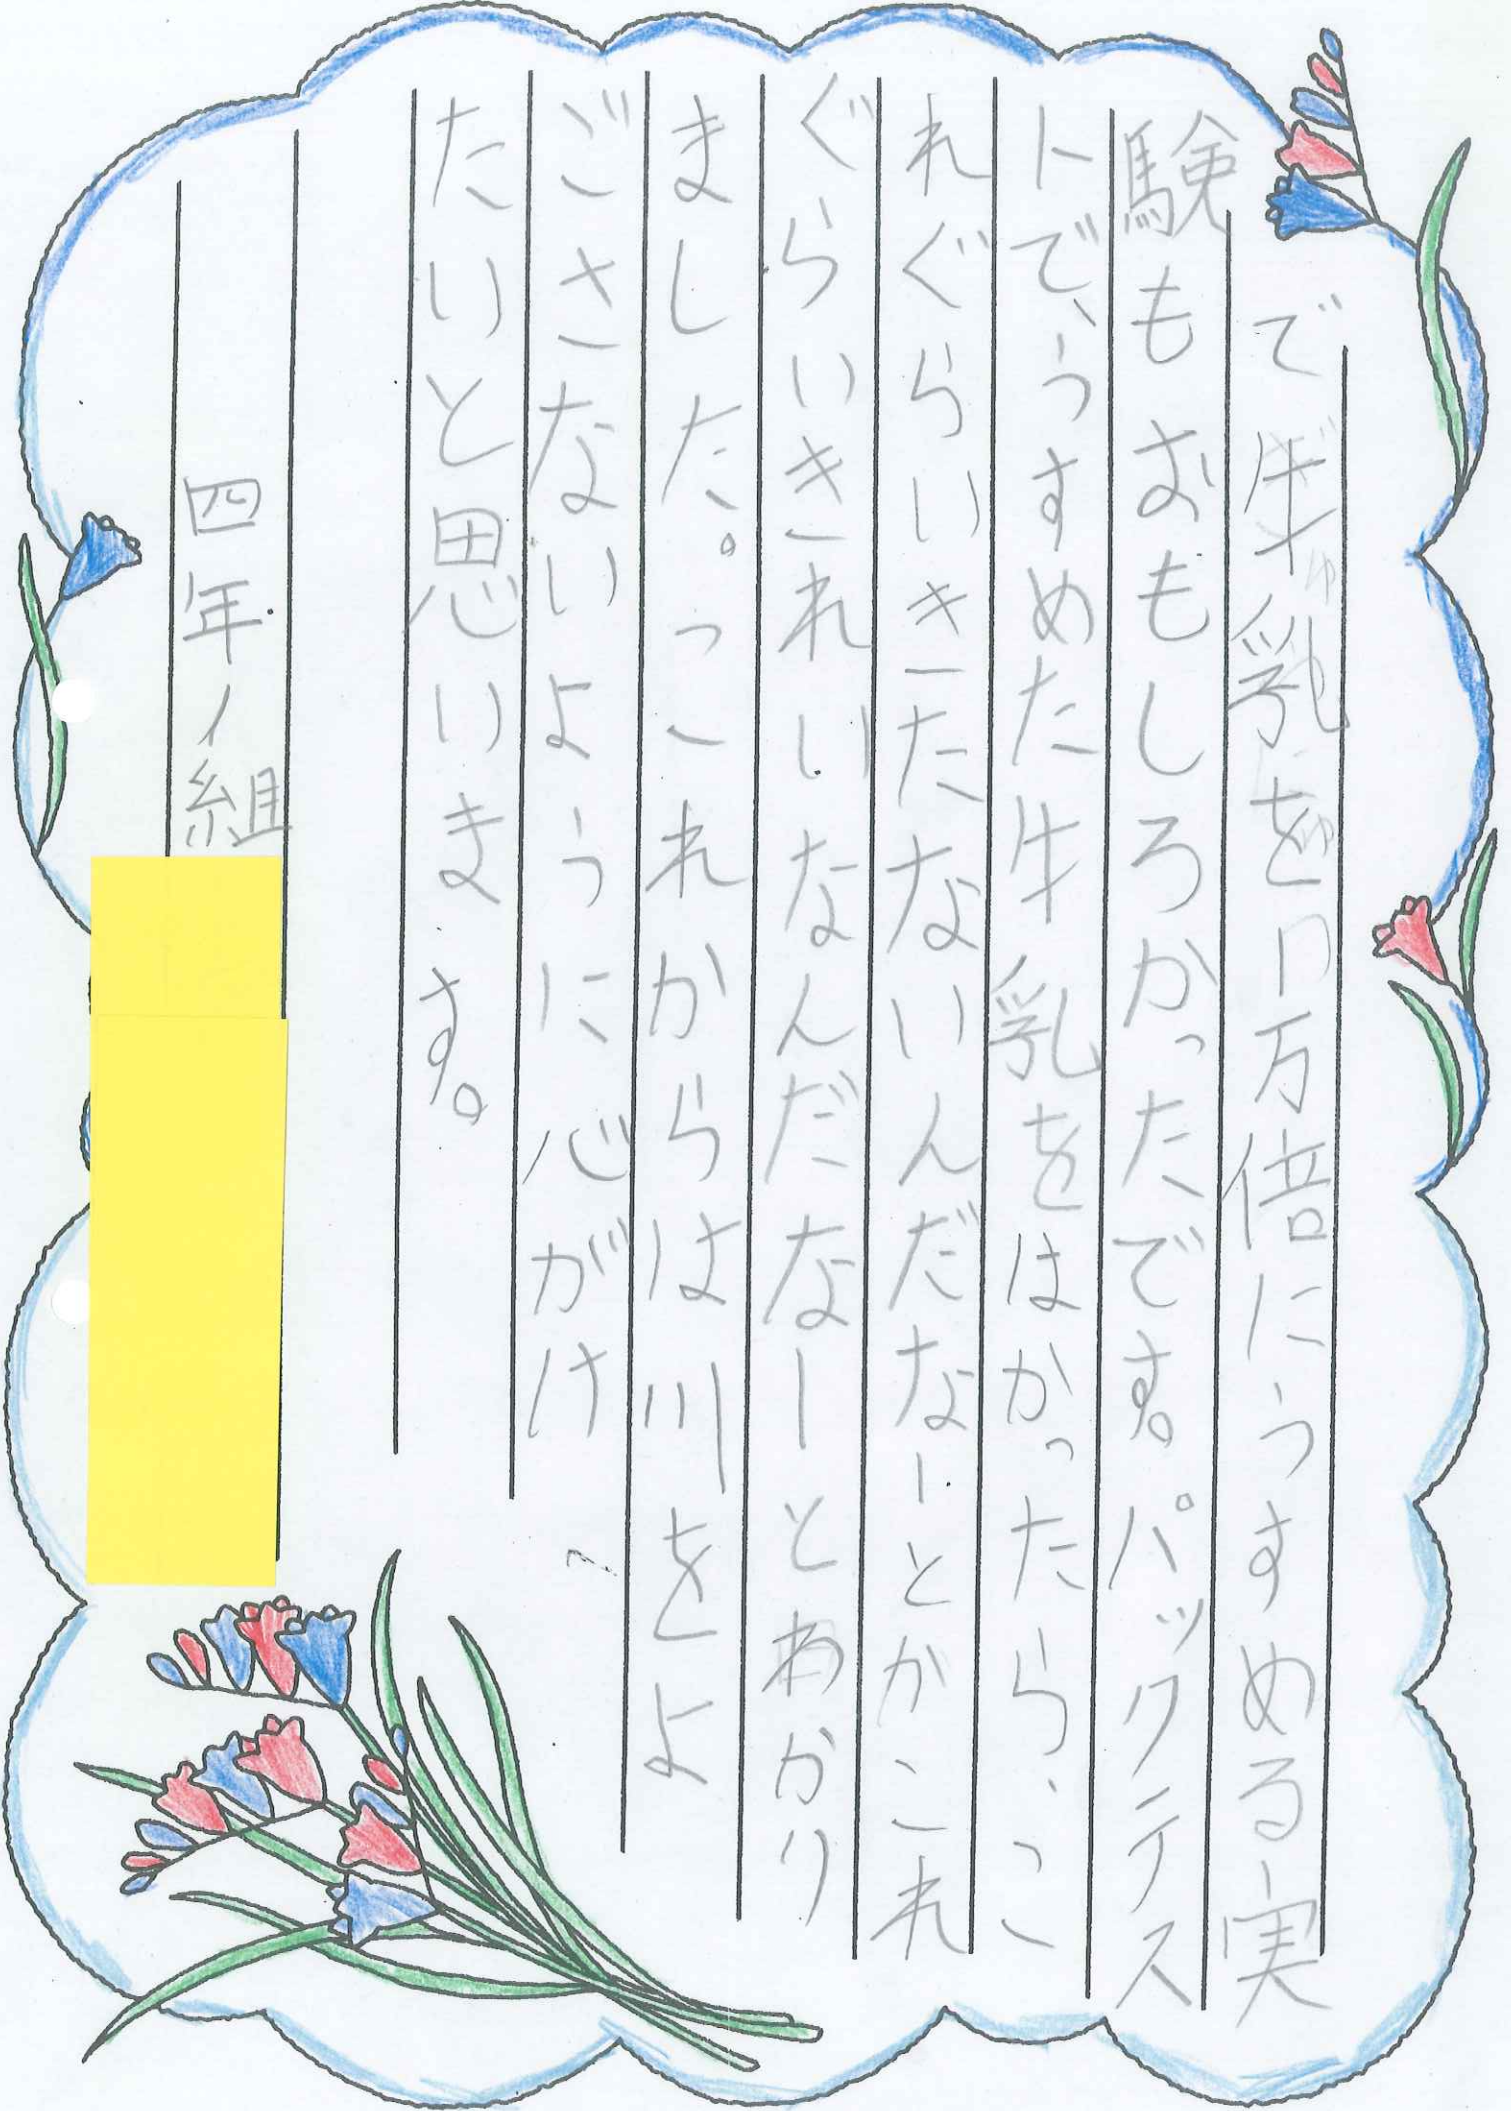 で牛乳を一万倍にうすめる実
験もおもしろかったです。パックテス
トで、うすめた牛乳をはかったら、こ
れぐらいきたないんだなーとかこれ
ぐらいきれいなんだなーとわかり
ました。これからは川をよ
ごさないように心がけ
たいと思います。
四年ノ組